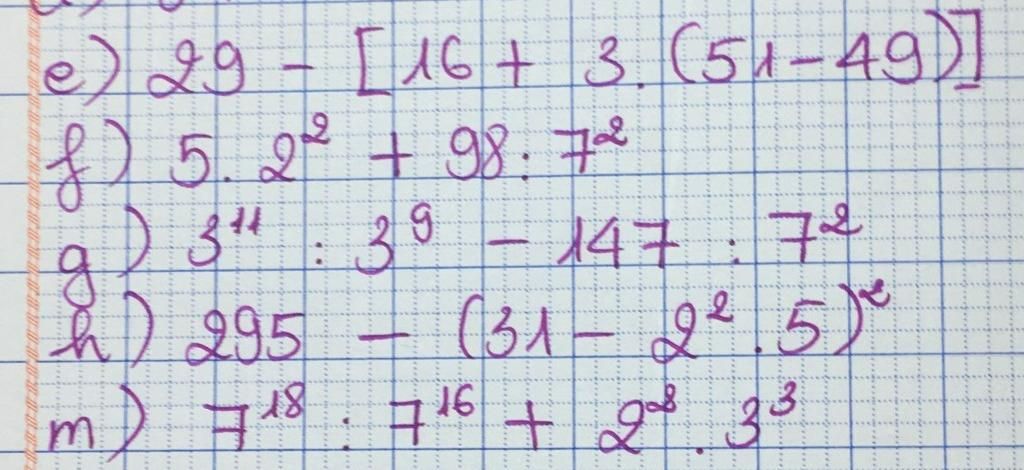 e) 29 - [16 + 3.(51-49)]
f) 5.2² + 98:7²
g) 3¹¹ : 3⁹ - 147 : 7²
h) 295 - (31 - 2².5)²
m) 7¹⁸ : 7¹⁶ + 2².3³